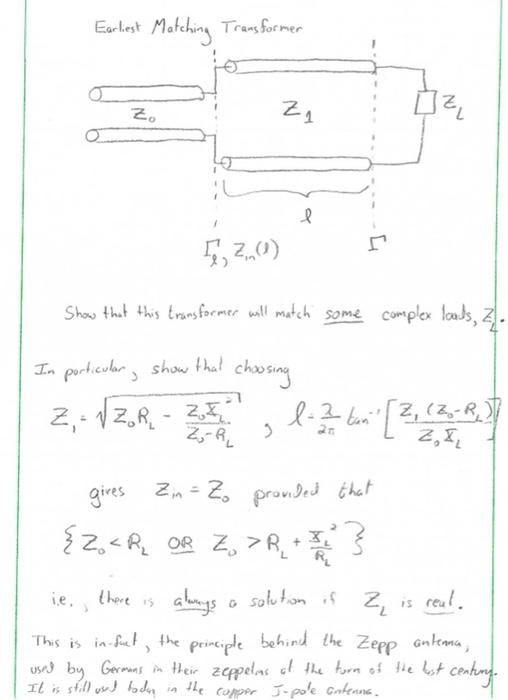 Earliest Matching Transformer
Z₀ Z₁ Z_L
l
Γ_l, Z_in(l) Γ
Show that this transformer will match some complex loads, Z_L.
In particular, show that choosing
Z₁ = √(Z₀R_L - Z₀X_L²/(Z₀-R_L)) , l = λ/2π tan⁻¹ [Z₁(Z₀-R_L)/(Z₀X_L)]
gives Z_in = Z₀ provided that
{Z₀ < R_L OR Z₀ > R_L + X_L²/R_L}
i.e., there is always a solution if Z_L is real.
This is in-fact, the principle behind the Zepp antenna,
used by Germans in their zeppelins at the turn of the last century.
It is still used today in the copper J-pole antenna.